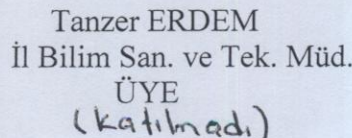 Tanzer ERDEM
İl Bilim San. ve Tek. Müd.
ÜYE
(katılmadı)